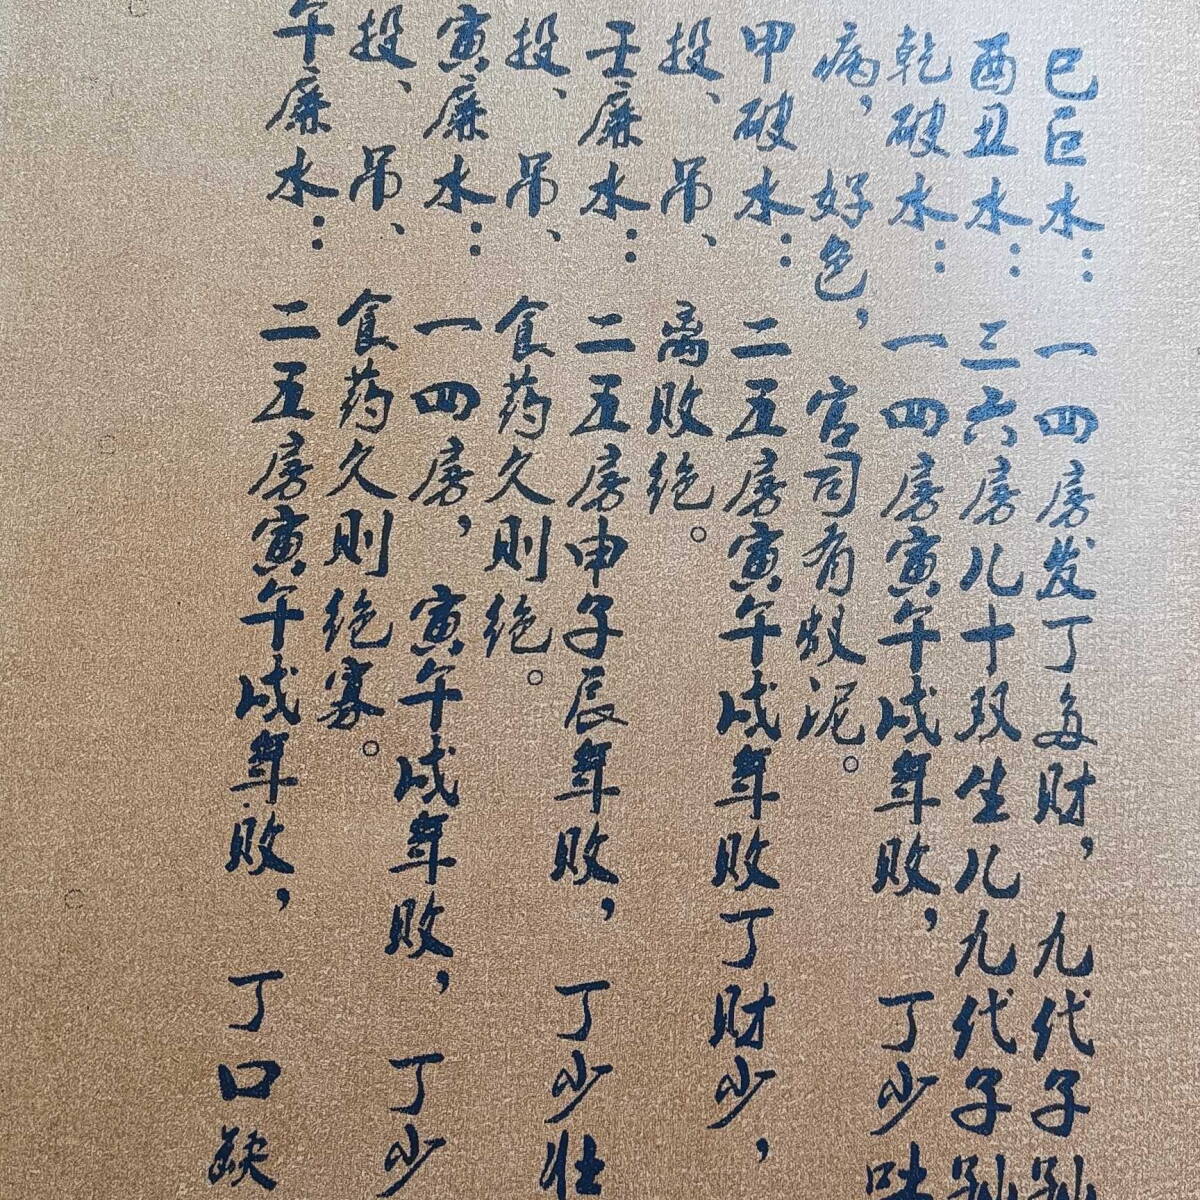 巳巨水：一四房发丁多财，九代子孙
酉丑水：三六房儿十双生儿九代子孙
乾破水：一四房寅午戌年败，丁少吐
病，好色，官司有奴泥。
甲破水：二五房寅午戌年败丁财少，
投、吊、离败绝。
壬廉水：二五房申子辰年败，丁少壮
投、吊、食药久则绝。
寅廉水：一四房，寅午戌年败，丁少
投、吊、食药久则绝寡。
午廉水：二五房寅午戌年败，丁口缺